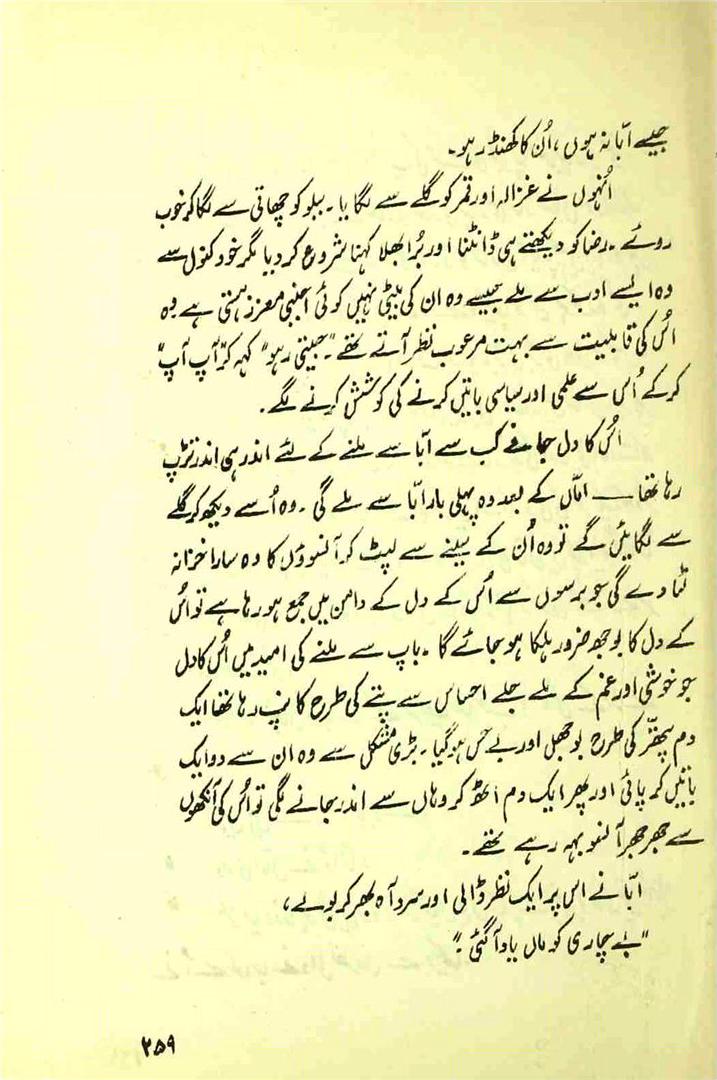 جیسے ابّا نہ ہوں، اُن کا کھنڈر ہو۔
اُنہوں نے غزالہ اور قمر کو گلے سے لگایا۔ ببلو کو چھاتی سے لگا کر خوب
روئے۔ رضا کو دیکھتے ہی ڈانٹنا اور بُرا بھلا کہنا شروع کر دیا مگر خود کنول سے
وہ ایسے ادب سے ملے جیسے وہ ان کی بیٹی نہیں کوئی اجنبی معزز ہستی ہے وہ
اُس کی قابلیت سے بہت مرعوب نظر آتے تھے "جیتی رہو" کہہ کر "آپ آپ"
کر کے اُس سے علمی اور سیاسی باتیں کرنے کی کوشش کرنے لگے۔
اُس کا دل جانے کب سے ابّا سے ملنے کے لئے اندر ہی اندر تڑپ
رہا تھا — امّاں کے بعد وہ پہلی بار ابّا سے ملے گی۔ وہ اُسے دیکھ کر گلے
سے لگائیں گے تو وہ اُن کے سینے سے لپٹ کر آنسوؤں کا وہ سارا خزانہ
لٹا دے گی جو برسوں سے اُس کے دل کے دامن میں جمع ہو رہا ہے تو اُس
کے دل کا بوجھ ضرور ہلکا ہو جائے گا۔ باپ سے ملنے کی امید میں اُس کا دل
جو خوشی اور غم کے ملے جلے احساس سے پتے کی طرح کانپ رہا تھا ایک
دم پتھر کی طرح بوجھل اور بے حس ہو گیا۔ بڑی مشکل سے وہ ان سے دو ایک
باتیں کر پائی اور پھر ایک دم اٹھ کر وہاں سے اندر جانے لگی تو اُس کی آنکھوں
سے جھر جھر آنسو بہہ رہے تھے۔
ابّا نے اس پر ایک نظر ڈالی اور سرد آہ بھر کر بولے،
"بے چاری کو ماں یاد آ گئی۔"
۲۵۹